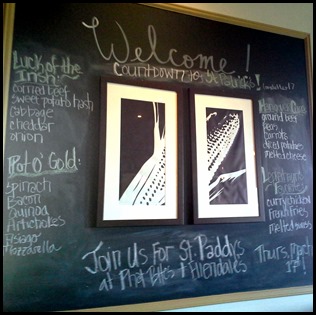 Welcome!
Countdown to St. Patrick's!
Luck of the
Irish:
corned beef
sweet potato hash
cabbage
cheddar
onion
Pot O' Gold:
spinach
Bacon
Quinoa
Artichokes
Asiago
Mozzarella
ground beef
peas
carrots
diced potatoes
melted cheese
curry chicken
French fries
melted swiss
Join Us For St. Paddy's
at Phat Bites & Ellendales
Thurs. March
17!